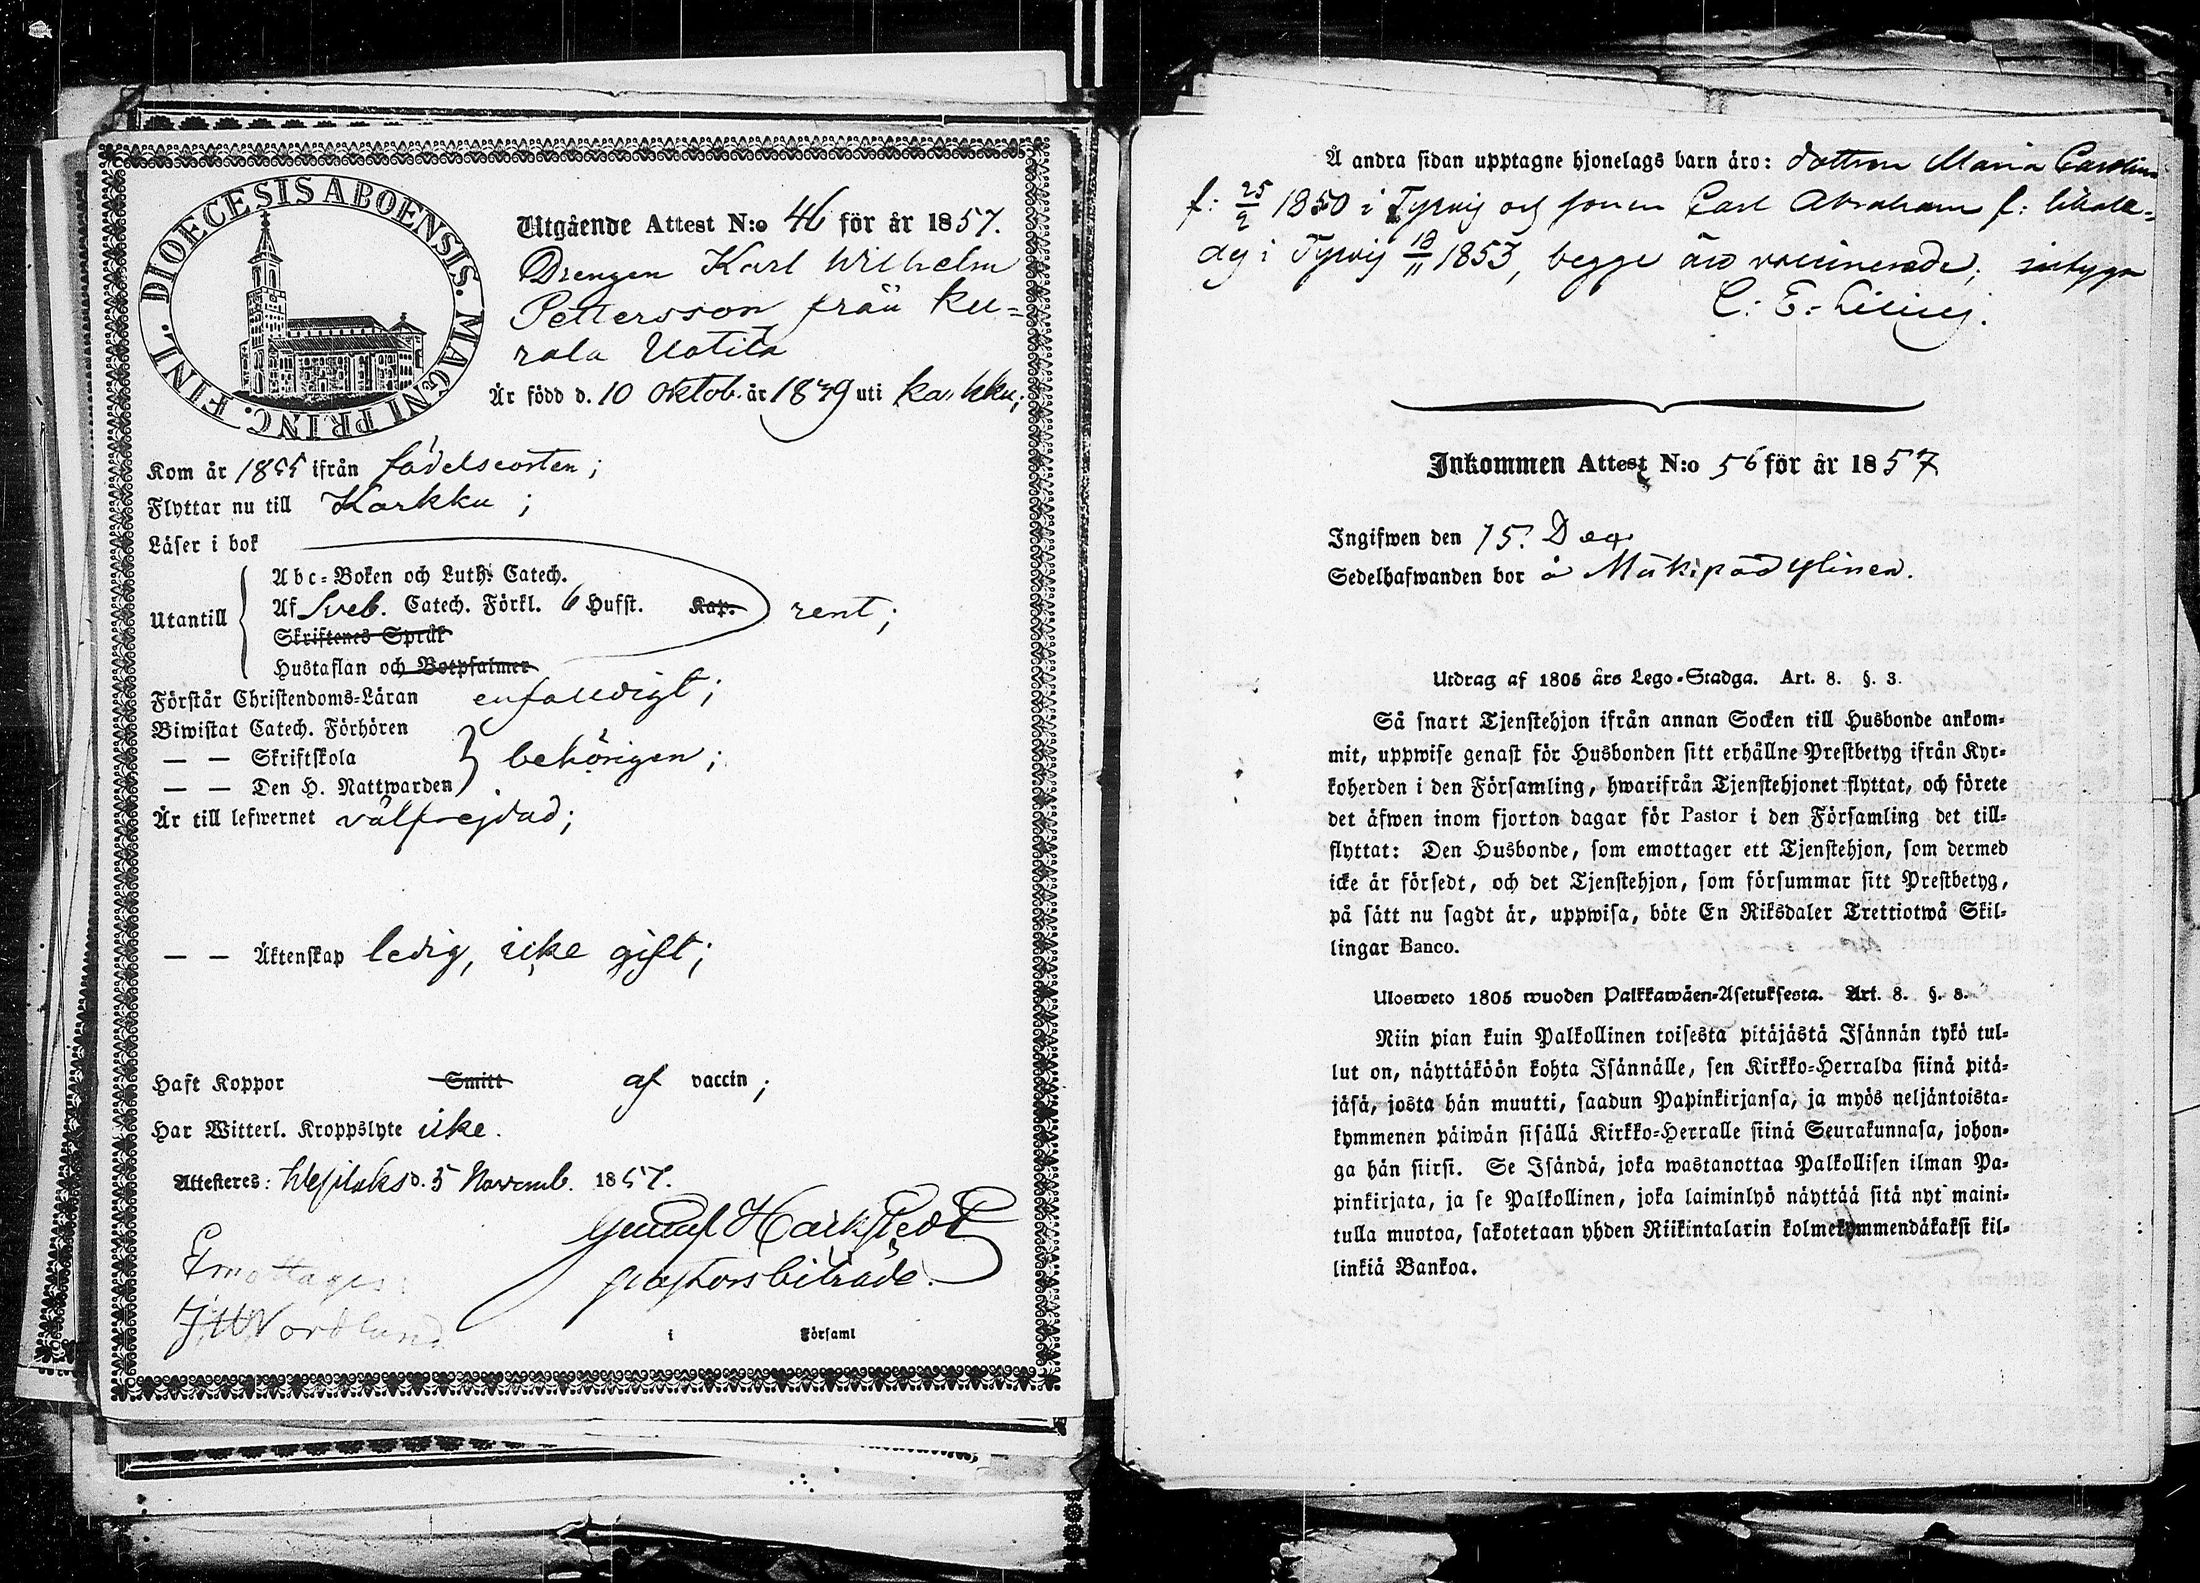 DIOECESIS ABOENSIS. MAGNI PRINC. FINL.
Utgående Attest N:o 46 för år 1857.
Drengen Karl Wilhelm
Pettersson från Ku=
rala Uotila
Är född d. 10 Oktob. år 1839 uti Karkku;
Kom år 1855 ifrån födelseorten;
Flyttar nu till Karkku;
Läser i bok
Abc-Boken och Luth. Catech.
Utantill Af Sveb. Catech. Förkl. 6 Hufst. Kap. rent;
Skriftenes Språk
Hustaflan och Botpsalmer
Förstår Christendoms-Läran enfaldigt;
Biwistat Catech. Förhören
— — Skriftskola behörigen;
— — Den H. Nattwarden
Är till lefwernet välfrejdad;
— — Äktenskap ledig, icke gift;
Haft Koppor Smitt af vaccin;
Har Witterl. Kroppslyte icke.
Attesteres: Wesilaks d. 5 Novemb. 1857.
Gustaf Harkstedt
pastorsbiträde.
Emottages:
Nordlund
i Församl
Å andra sidan upptagne hjonelags barn äro: dottren Maria Carolina
f: 25/9 1850 i Tyrvis och sonen Carl Abraham f: likale=
des i Tyrvis 18/11 1853, begge äro vaccinerade; intygar
Inkommen Attest N:o 56 för år 1857
Ingifwen den 15. Dec.
Sedelhafwanden bor å Mäkipää Ylinen.
Utdrag af 1805 års Lego-Stadga. Art. 8. §. 3.
Så snart Tjenstehjon ifrån annan Socken till Husbonde ankom-
mit, uppwise genast för Husbonden sitt erhållne Prestbetyg ifrån Kyr-
koherden i den Församling, hwarifrån Tjenstehjonet flyttat, och förete
det äfwen inom fjorton dagar för Pastor i den Församling det till-
flyttat: Den Husbonde, som emottager ett Tjenstehjon, som dermed
icke är försedt, och det Tjenstehjon, som försummar sitt Prestbetyg,
på sätt nu sagdt är, uppwisa, böte En Riksdaler Trettiotwå Skil-
lingar Banco.
Ulosweto 1805 wuoden Palkkawäen-Asetuksesta. Art. 8. §. 8.
Niin pian kuin Palkollinen toisesta pitäjästä Isännän tykö tul-
lut on, näyttäköön kohta Isännälle, sen Kirkko-Herralda siinä pitä-
jäsä, josta hän muutti, saadun Papinkirjansa, ja myös neljäntoista-
kymmenen päiwän sisällä Kirkko-Herralle siinä Seurakunnasa, johon-
ga hän siirsi. Se Isändä, joka wastanottaa Palkollisen ilman Pa-
pinkirjata, ja se Palkollinen, joka laiminlyö näyttää sitä nyt maini-
tulla muotoa, sakotetaan yhden Riikintalarin kolmekymmendäkaksi kil-
linkiä Bankoa.